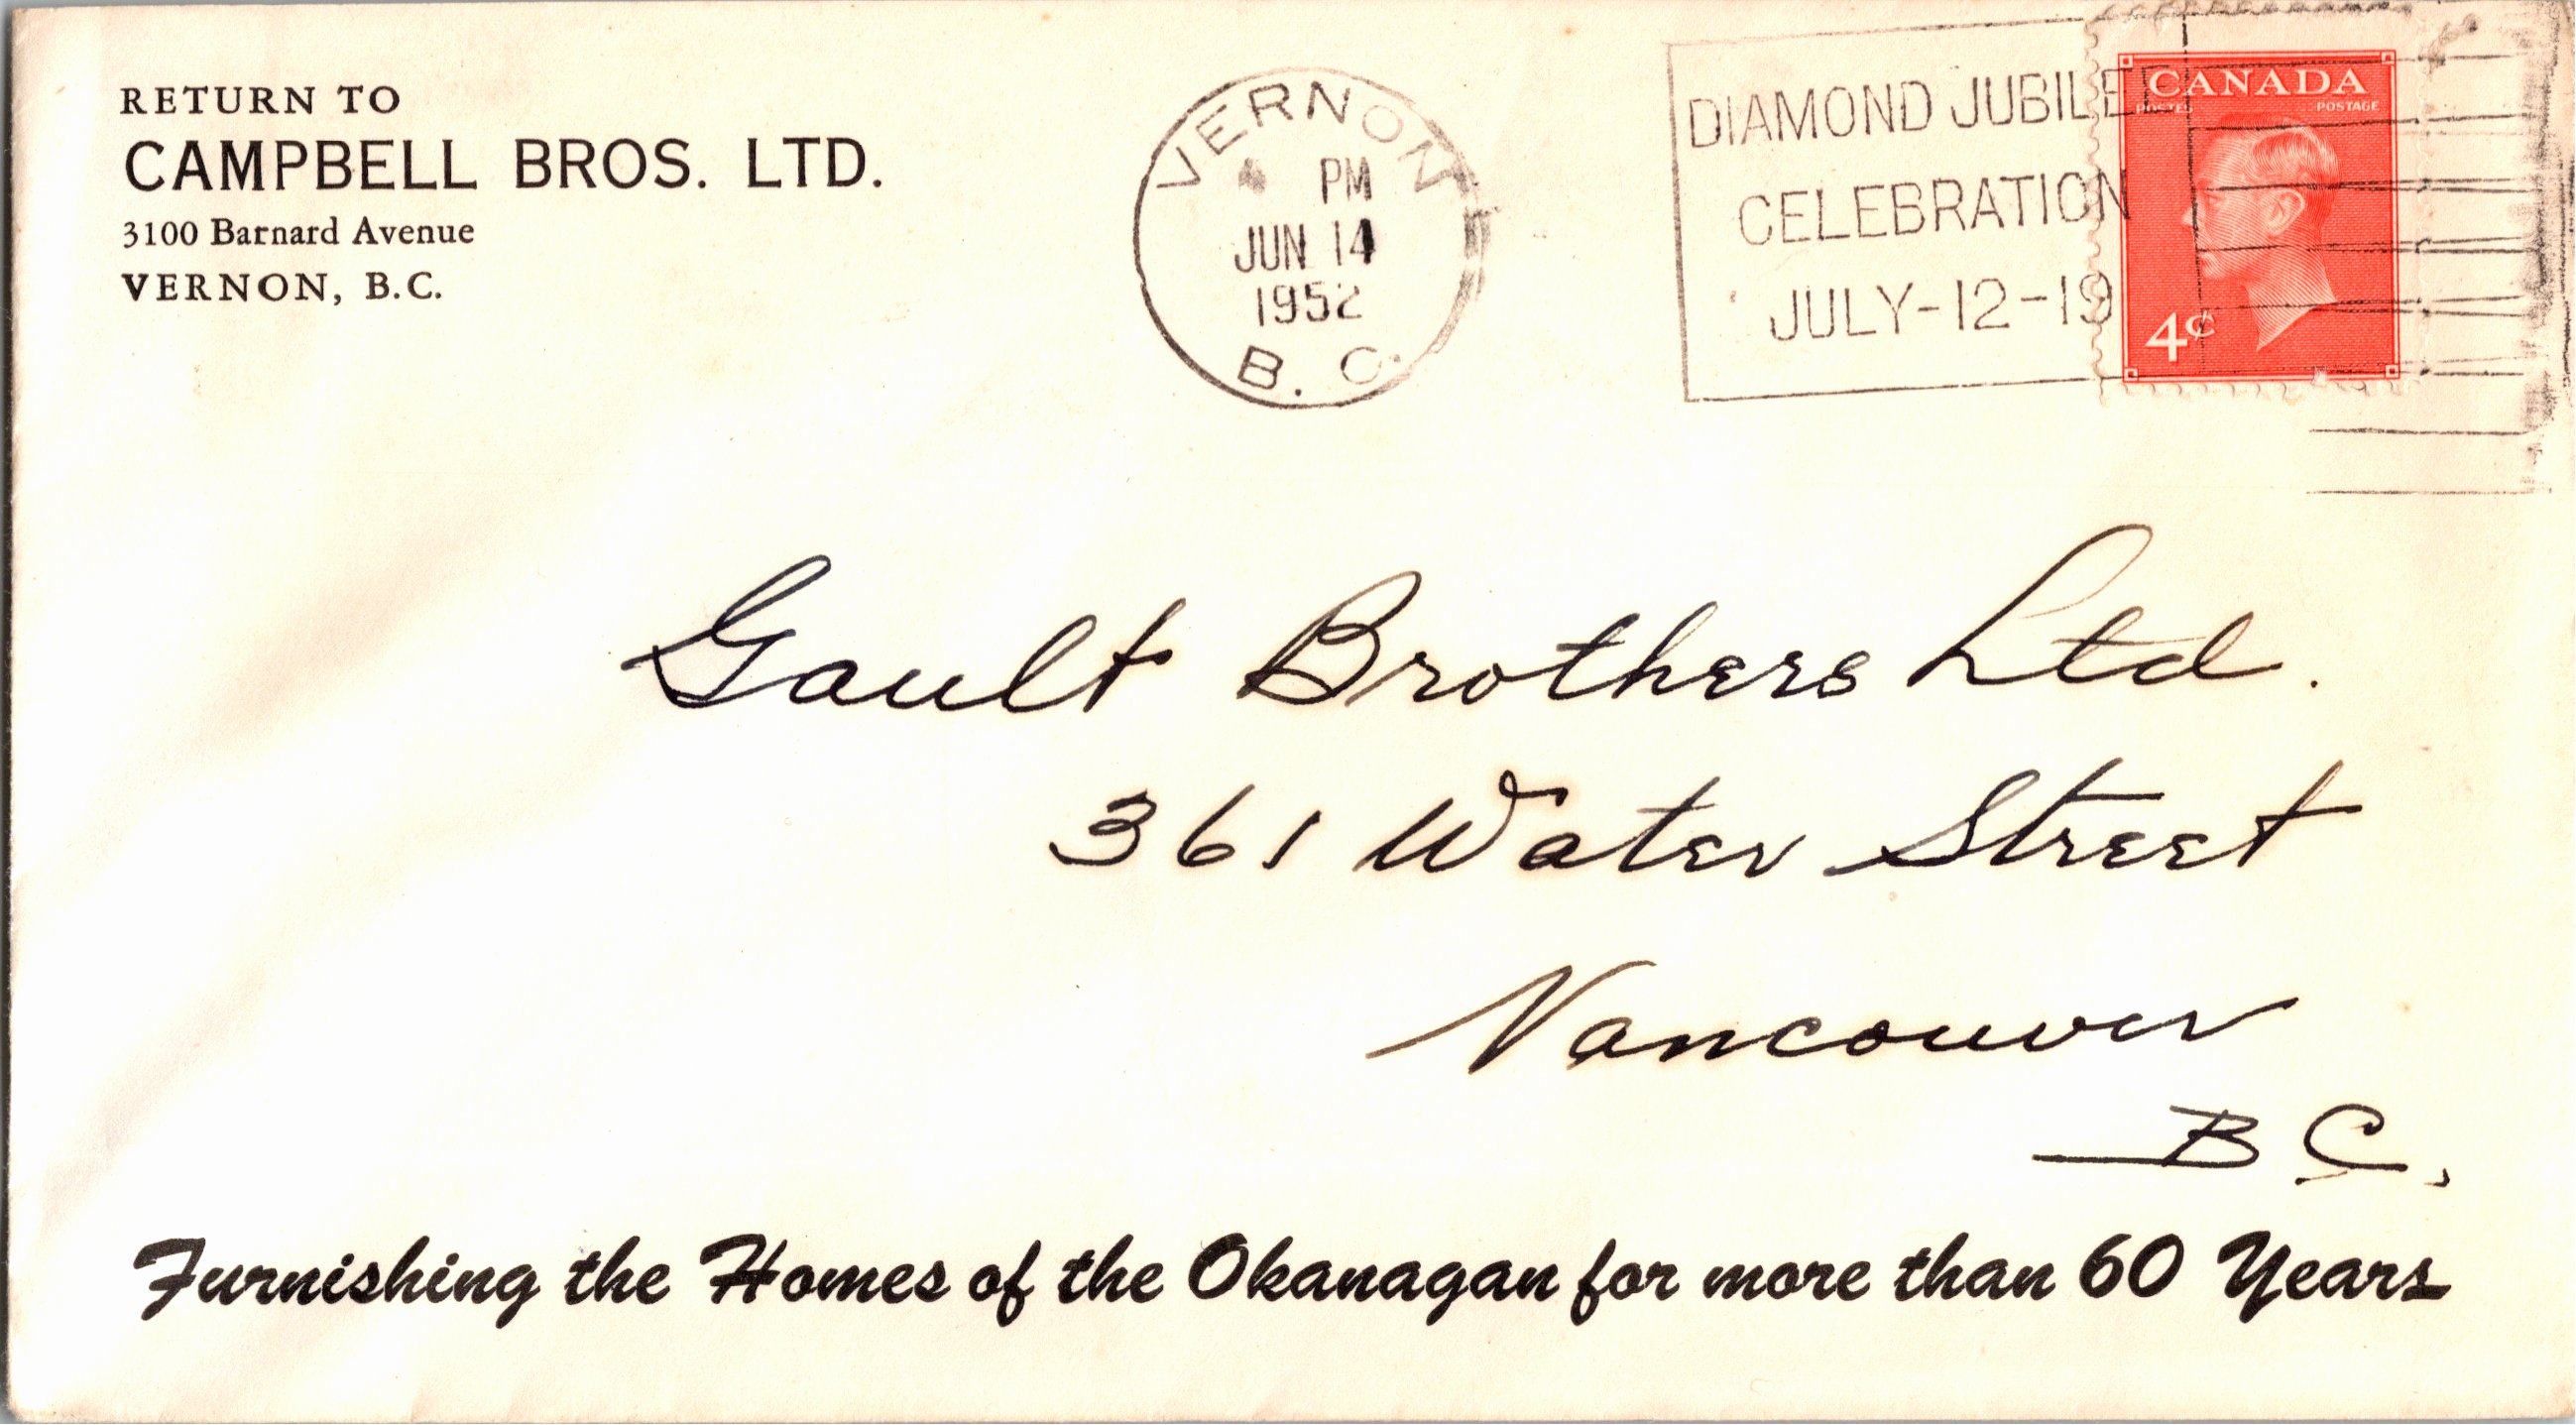 RETURN TO
CAMPBELL BROS. LTD.
3100 Barnard Avenue
VERNON, B.C.
VERNON
4 PM
JUN 14
1952
B. C.
DIAMOND JUBILEE
CELEBRATION
JULY-12-19
CANADA
POSTES POSTAGE
4¢
Gault Brothers Ltd.
361 Water Street
Vancouver
B C.
Furnishing the Homes of the Okanagan for more than 60 Years